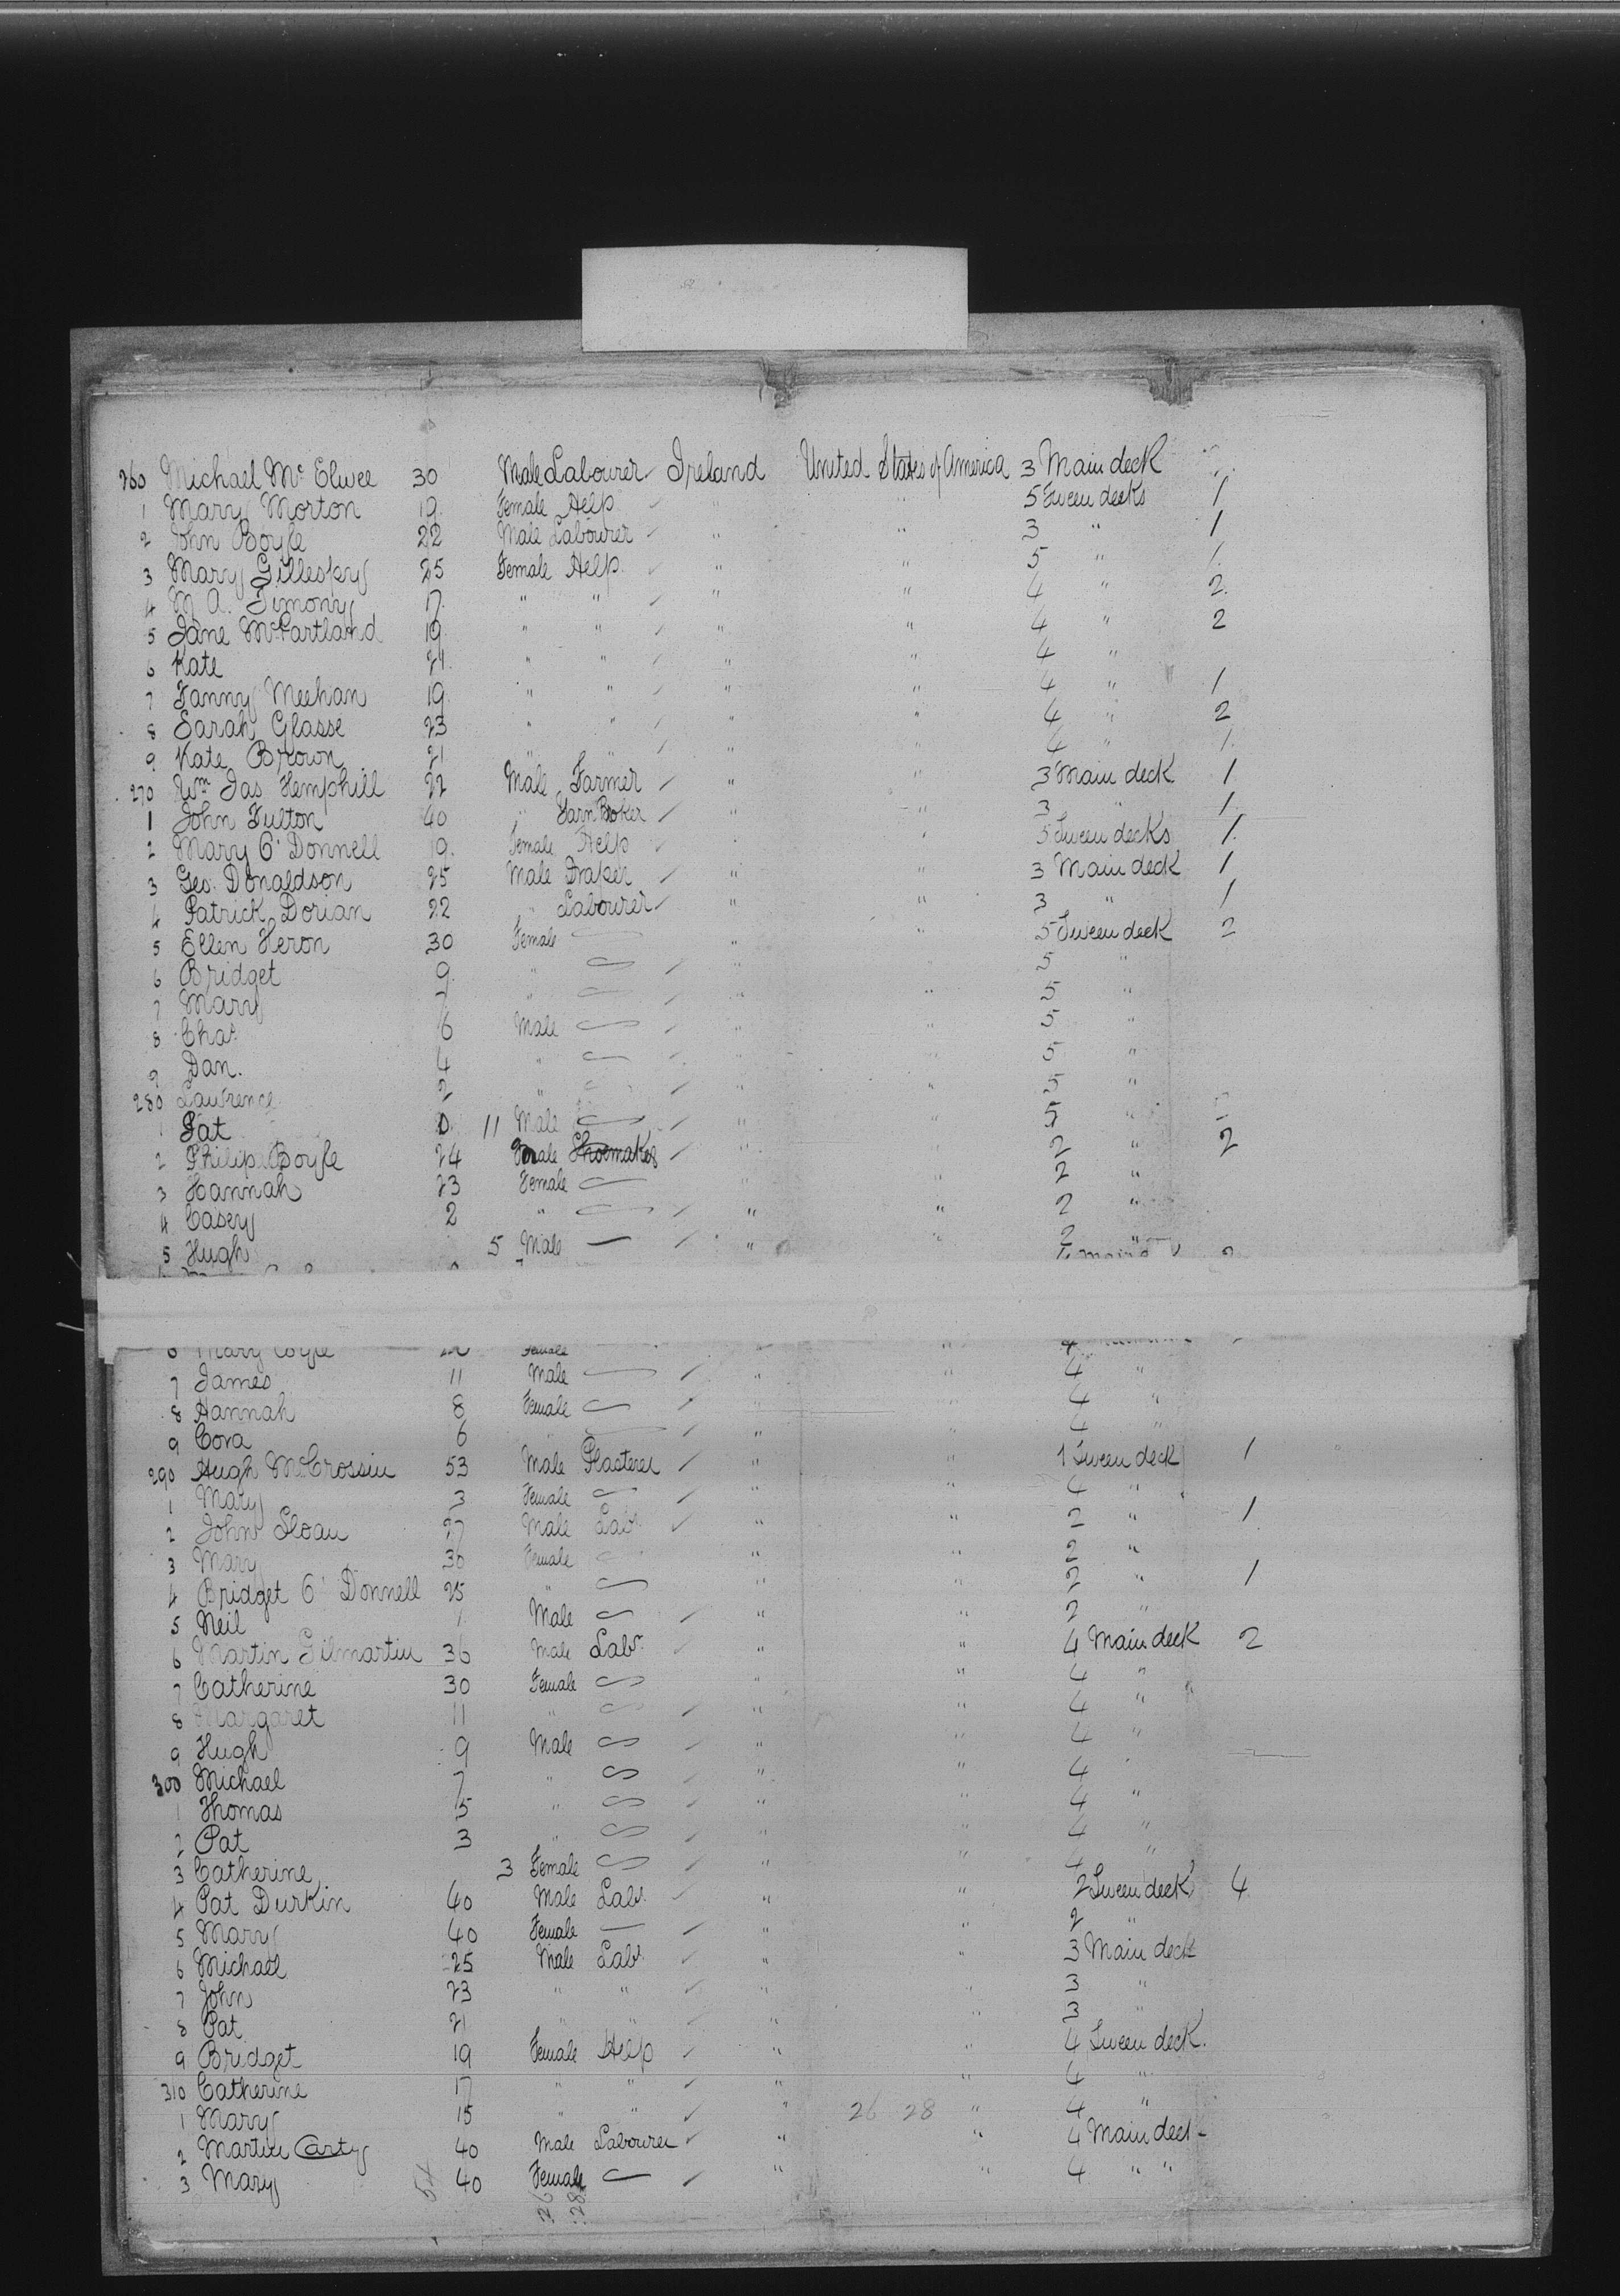 260 Michael Mc Elwee 30 Male Labourer Ireland United States of America 3 Main deck
1 Mary Morton 19 Female Help " " 5 Tween decks 1
2 John Boyle 22 Male Labourer " " 3 " 1
3 Mary Gillespy 25 Female Help " " 5 " 1
4 M A. Timony 17 " " " " 4 " 2
5 Jane McPartland 19 " " " " 4 " 2
6 Kate 21 " " " " 4 "
7 Fanny Meehan 19 " " " " 4 " 1
8 Sarah Glasse 23 " " " " 4 " 2
9 Kate Brown 21 " " " " 4 " 1
270 Wm Jas Hemphill 22 Male Farmer " " 3 Main deck 1
1 John Fulton 40 " Yarn Broker " " 3 " 1
2 Mary O'Donnell 19 Female Help " " 5 Tween decks 1
3 Geo. Donaldson 25 Male Draper " " 3 Main deck 1
4 Patrick Dorian 22 " Labourer " " 3 " 1
5 Ellen Heron 30 Female — " " 5 Tween deck 2
6 Bridget 9 " — " " 5 "
7 Mary 7 " — " " 5 "
8 Chas 6 Male — " " 5 "
9 Dan. 4 " — " " 5 "
280 Lawrence 2 " — " " 5 "
1 Pat 11 Male — " " 5 "
2 Philip Boyle 24 Male Shoemaker " " 2 " 2
3 Hannah 23 Female — " " 2 "
4 Casey 2 " — " " 2 "
5 Hugh 5 Male — " " 2 "
6 Mary Coyle Female — " 4
7 James 11 Male — " " 4 "
8 Hannah 8 Female — " " 4 "
9 Cora 6 " — " " 4 "
290 Hugh McCrossin 53 Male Plasterer " " 1 Tween deck 1
1 Mary 3 Female — " " 4 "
2 John Sloan 27 Male Labr " " 2 " 1
3 Mary 30 Female — " " 2 "
4 Bridget O'Donnell 25 " — " " 2 " 1
5 Neil 1 Male — " " 2 "
6 Martin Gilmartin 36 Male Labr " " 4 Main deck 2
7 Catherine 30 Female — " " 4 "
8 Margaret 11 " — " " 4 "
9 Hugh 9 Male — " " 4 "
300 Michael 7 " — " " 4 "
1 Thomas 5 " — " " 4 "
2 Pat 3 " — " " 4 "
3 Catherine 3 Female — " " 4 "
4 Pat Durkin 40 Male Labr " " 2 Tween deck 4
5 Mary 40 Female — " " 2 "
6 Michael 25 Male Labr " " 3 Main deck
7 John 23 " " " " 3 "
8 Pat 21 " " " " 3 "
9 Bridget 19 Female Help " " 4 Tween deck.
310 Catherine 17 " " " " 4 "
1 Mary 15 " " " 26 28 " 4 "
2 Martin Carty 40 Male Labourer " " 4 Main deck
3 Mary 40 Female — " " 4 " "
54 26 28